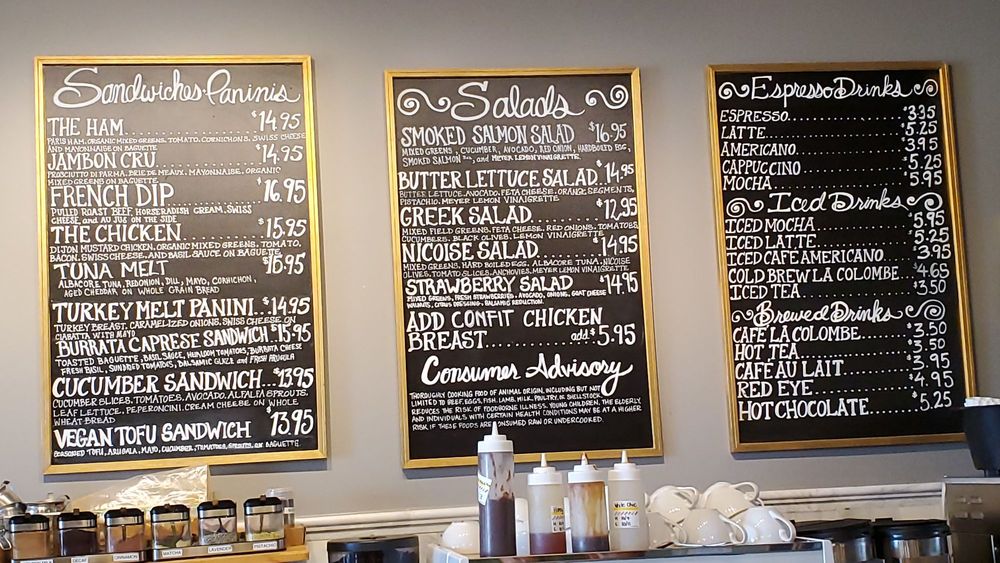 Sandwiches · Paninis
THE HAM $14.95
PARIS HAM, ORGANIC MIXED GREENS, TOMATO, CORNICHONS, SWISS CHEESE
AND MAYONNAISE ON BAGUETTE
JAMBON CRU $14.95
PROSCIUTTO DI PARMA, BRIE DE MEAUX, MAYONNAISE, ORGANIC
MIXED GREENS ON BAGUETTE
FRENCH DIP $16.95
PULLED ROAST BEEF, HORSERADISH CREAM, SWISS
CHEESE, and AU JUS ON THE SIDE
THE CHICKEN $15.95
DIJON MUSTARD CHICKEN, ORGANIC MIXED GREENS, TOMATO,
BACON, SWISS CHEESE, AND BASIL SAUCE ON BAGUETTE
TUNA MELT $15.95
ALBACORE TUNA, RED ONION, DILL, MAYO, CORNICHON,
AGED CHEDDAR ON WHOLE GRAIN BREAD
TURKEY MELT PANINI $14.95
TURKEY BREAST, CARAMELIZED ONIONS, SWISS CHEESE ON
CIABATTA WITH MAYO
BURRATA CAPRESE SANDWICH $15.95
TOASTED BAGUETTE, BASIL SAUCE, HEIRLOOM TOMATOES, BURRATA CHEESE
FRESH BASIL, SUNDRIED TOMATOES, BALSAMIC GLAZE and FRESH ARUGULA
CUCUMBER SANDWICH $13.95
CUCUMBER SLICES, TOMATOES, AVOCADO, ALFALFA SPROUTS,
LEAF LETTUCE, PEPERONCINI, CREAM CHEESE ON WHOLE
WHEAT BREAD
VEGAN TOFU SANDWICH $13.95
SEASONED TOFU, ARUGALA, MAYO, CUCUMBER, TOMATOES, SPROUTS, ON BAGUETTE
Salads
SMOKED SALMON SALAD $16.95
MIXED GREENS, CUCUMBER, AVOCADO, RED ONION, HARDBOILED EGG,
SMOKED SALMON and MEYER LEMON VINAIGRETTE
BUTTER LETTUCE SALAD $14.95
BUTTER LETTUCE, AVOCADO, FETA CHEESE, ORANGE SEGMENTS,
PISTACHIO, MEYER LEMON VINAIGRETTE
GREEK SALAD $12.95
MIXED FIELD GREENS, FETA CHEESE, RED ONIONS, TOMATOES,
CUCUMBERS, BLACK OLIVES, LEMON VINAIGRETTE
NICOISE SALAD $14.95
MIXED GREENS, HARD BOILED EGG, ALBACORE TUNA, NICOISE
OLIVES, TOMATO SLICES, ANCHOVIES, MEYER LEMON VINAIGRETTE
STRAWBERRY SALAD $14.95
MIXED GREENS, FRESH STRAWBERRIES, AVOCADO, ONIONS, GOAT CHEESE
WALNUTS, CITRUS DRESSING, BALSAMIC REDUCTION
ADD CONFIT CHICKEN
BREAST add $5.95
Consumer Advisory
THOROUGHLY COOKING FOOD OF ANIMAL ORIGIN, INCLUDING BUT NOT
LIMITED TO BEEF, EGGS, FISH, LAMB, MILK, POULTRY, OR SHELLSTOCK
REDUCES THE RISK OF FOODBORNE ILLNESS. YOUNG CHILDREN, THE ELDERLY,
AND INDIVIDUALS WITH CERTAIN HEALTH CONDITIONS MAY BE AT A HIGHER
RISK, IF THESE FOODS ARE CONSUMED RAW OR UNDERCOOKED.
Espresso Drinks
ESPRESSO $3.35
LATTE $5.25
AMERICANO $3.95
CAPPUCCINO $5.25
MOCHA $5.95
Iced Drinks
ICED MOCHA $5.95
ICED LATTE $5.25
ICED CAFE AMERICANO $3.95
COLD BREW LA COLOMBE $4.65
ICED TEA $3.50
Brewed Drinks
CAFE LA COLOMBE $3.50
HOT TEA $3.50
CAFE AU LAIT $3.95
RED EYE $4.95
HOT CHOCOLATE $5.25
DECAF
CINNAMON
MATCHA
LAVENDER
PISTACHIO